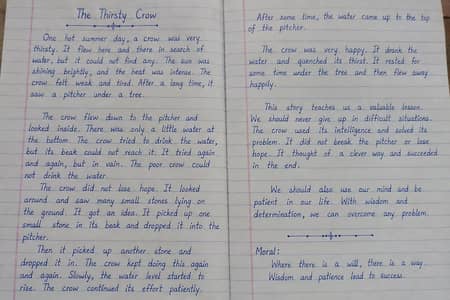 The Thirsty Crow
One hot summer day, a crow was very
thirsty. It flew here and there in search of
water, but it could not find any. The sun was
shining brightly, and the heat was intense. The
crow felt weak and tired. After a long time, it
saw a pitcher under a tree.
The crow flew down to the pitcher and
looked inside. There was only a little water at
the bottom. The crow tried to drink the water,
but its beak could not reach it. It tried again
and again, but in vain. The poor crow could
not drink the water.
The crow did not lose hope. It looked
around and saw many small stones lying on
the ground. It got an idea. It picked up one
small stone in its beak and dropped it into the
pitcher.
Then it picked up another stone and
dropped it in. The crow kept doing this again
and again. Slowly, the water level started to
rise. The crow continued its effort patiently.
After some time, the water came up to the top
of the pitcher.
The crow was very happy. It drank the
water and quenched its thirst. It rested for
some time under the tree and then flew away
happily.
This story teaches us a valuable lesson.
We should never give up in difficult situations.
The crow used its intelligence and solved its
problem. It did not break the pitcher or lose
hope. It thought of a clever way and succeeded
in the end.
We should also use our mind and be
patient in our life. With wisdom and
determination, we can overcome any problem.
Moral:
Where there is a will, there is a way.
Wisdom and patience lead to success.